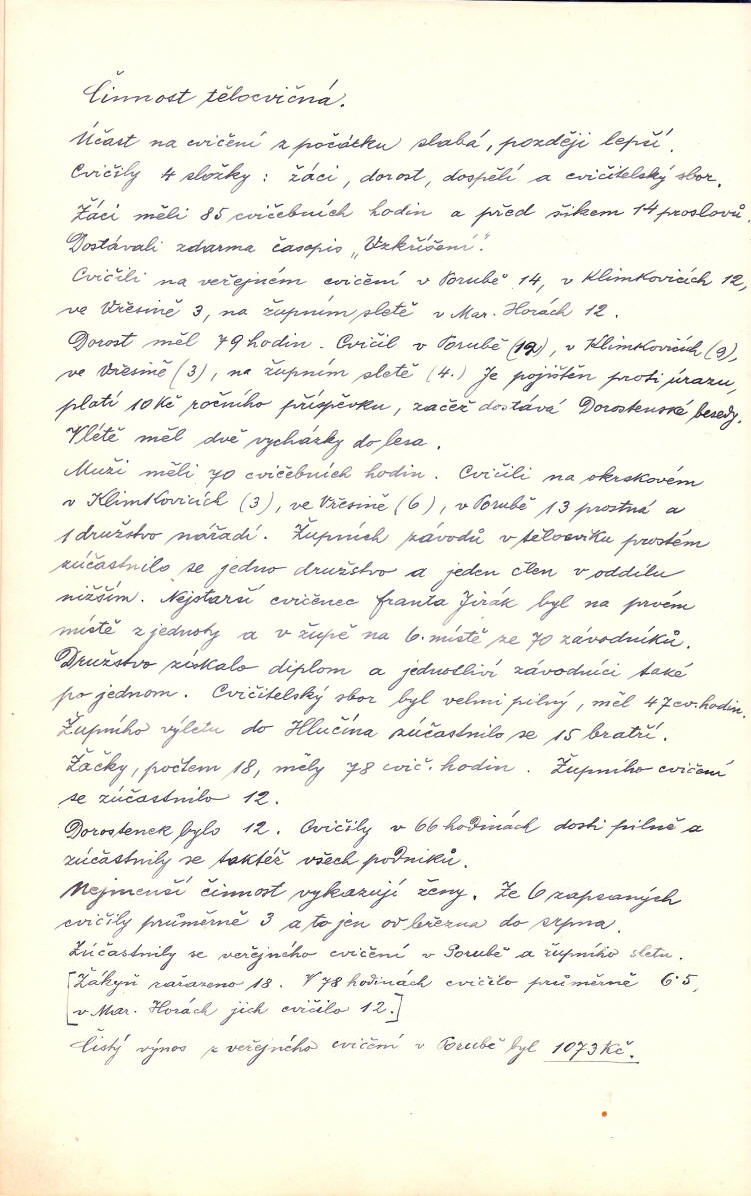 Činnost tělocvičná.
Účast na cvičení z počátku slabá, později lepší.
Cvičily 4 složky: žáci, dorost, dospělí a cvičitelský sbor.
Žáci měli 85 cvičebních hodin a před šikem 14 proslovů.
Dostávali zdarma časopis „Vzkříšení".
Cvičili na veřejném cvičení v Porubě 14, v Klimkovicích 12,
ve Vřesině 3, na župním sletě v Mar. Horách 12.
Dorost měl 79 hodin. Cvičil v Porubě (12), v Klimkovicích (9),
ve Vřesině (3), na župním sletě (4.) Je pojištěn proti úrazu,
platí 10 Kč ročního příspěvku, začež dostává Dorostenské besedy.
V létě měl dvě vycházky do lesa.
Muži měli 70 cvičebních hodin. Cvičili na okrskovém
v Klimkovicích (3), ve Vřesině (6), v Porubě 13 prostná a
1 družstvo nářadí. Župních závodů v tělocviku prostém
zúčastnilo se jedno družstvo a jeden člen v oddílu
nižším. Nejstarší cvičenec Franta Jirák byl na prvém
místě z jednoty a v župě na 6. místě ze 70 závodníků.
Družstvo získalo diplom a jednotliví závodníci také
po jednom. Cvičitelský sbor byl velmi pilný, měl 47 cv. hodin.
Župního výletu do Hlučína zúčastnilo se 15 bratří.
Žačky, počtem 18, měly 78 cvič. hodin. Župního cvičení
se zúčastnilo 12.
Dorostenek bylo 12. Cvičily v 66 hodinách dosti pilně a
zúčastnily se taktéž všech podniků.
Nejmenší činnost vykazují ženy. Ze 6 zapsaných
cvičily průměrně 3 a to jen od března do srpna.
Zúčastnily se veřejného cvičení v Porubě a župního sletu.
[Žákyň zařazeno 18. V 78 hodinách cvičilo průměrně 6·5,
v Mar. Horách jich cvičilo 12.]
Čistý výnos z veřejného cvičení v Porubě byl 1073 Kč.